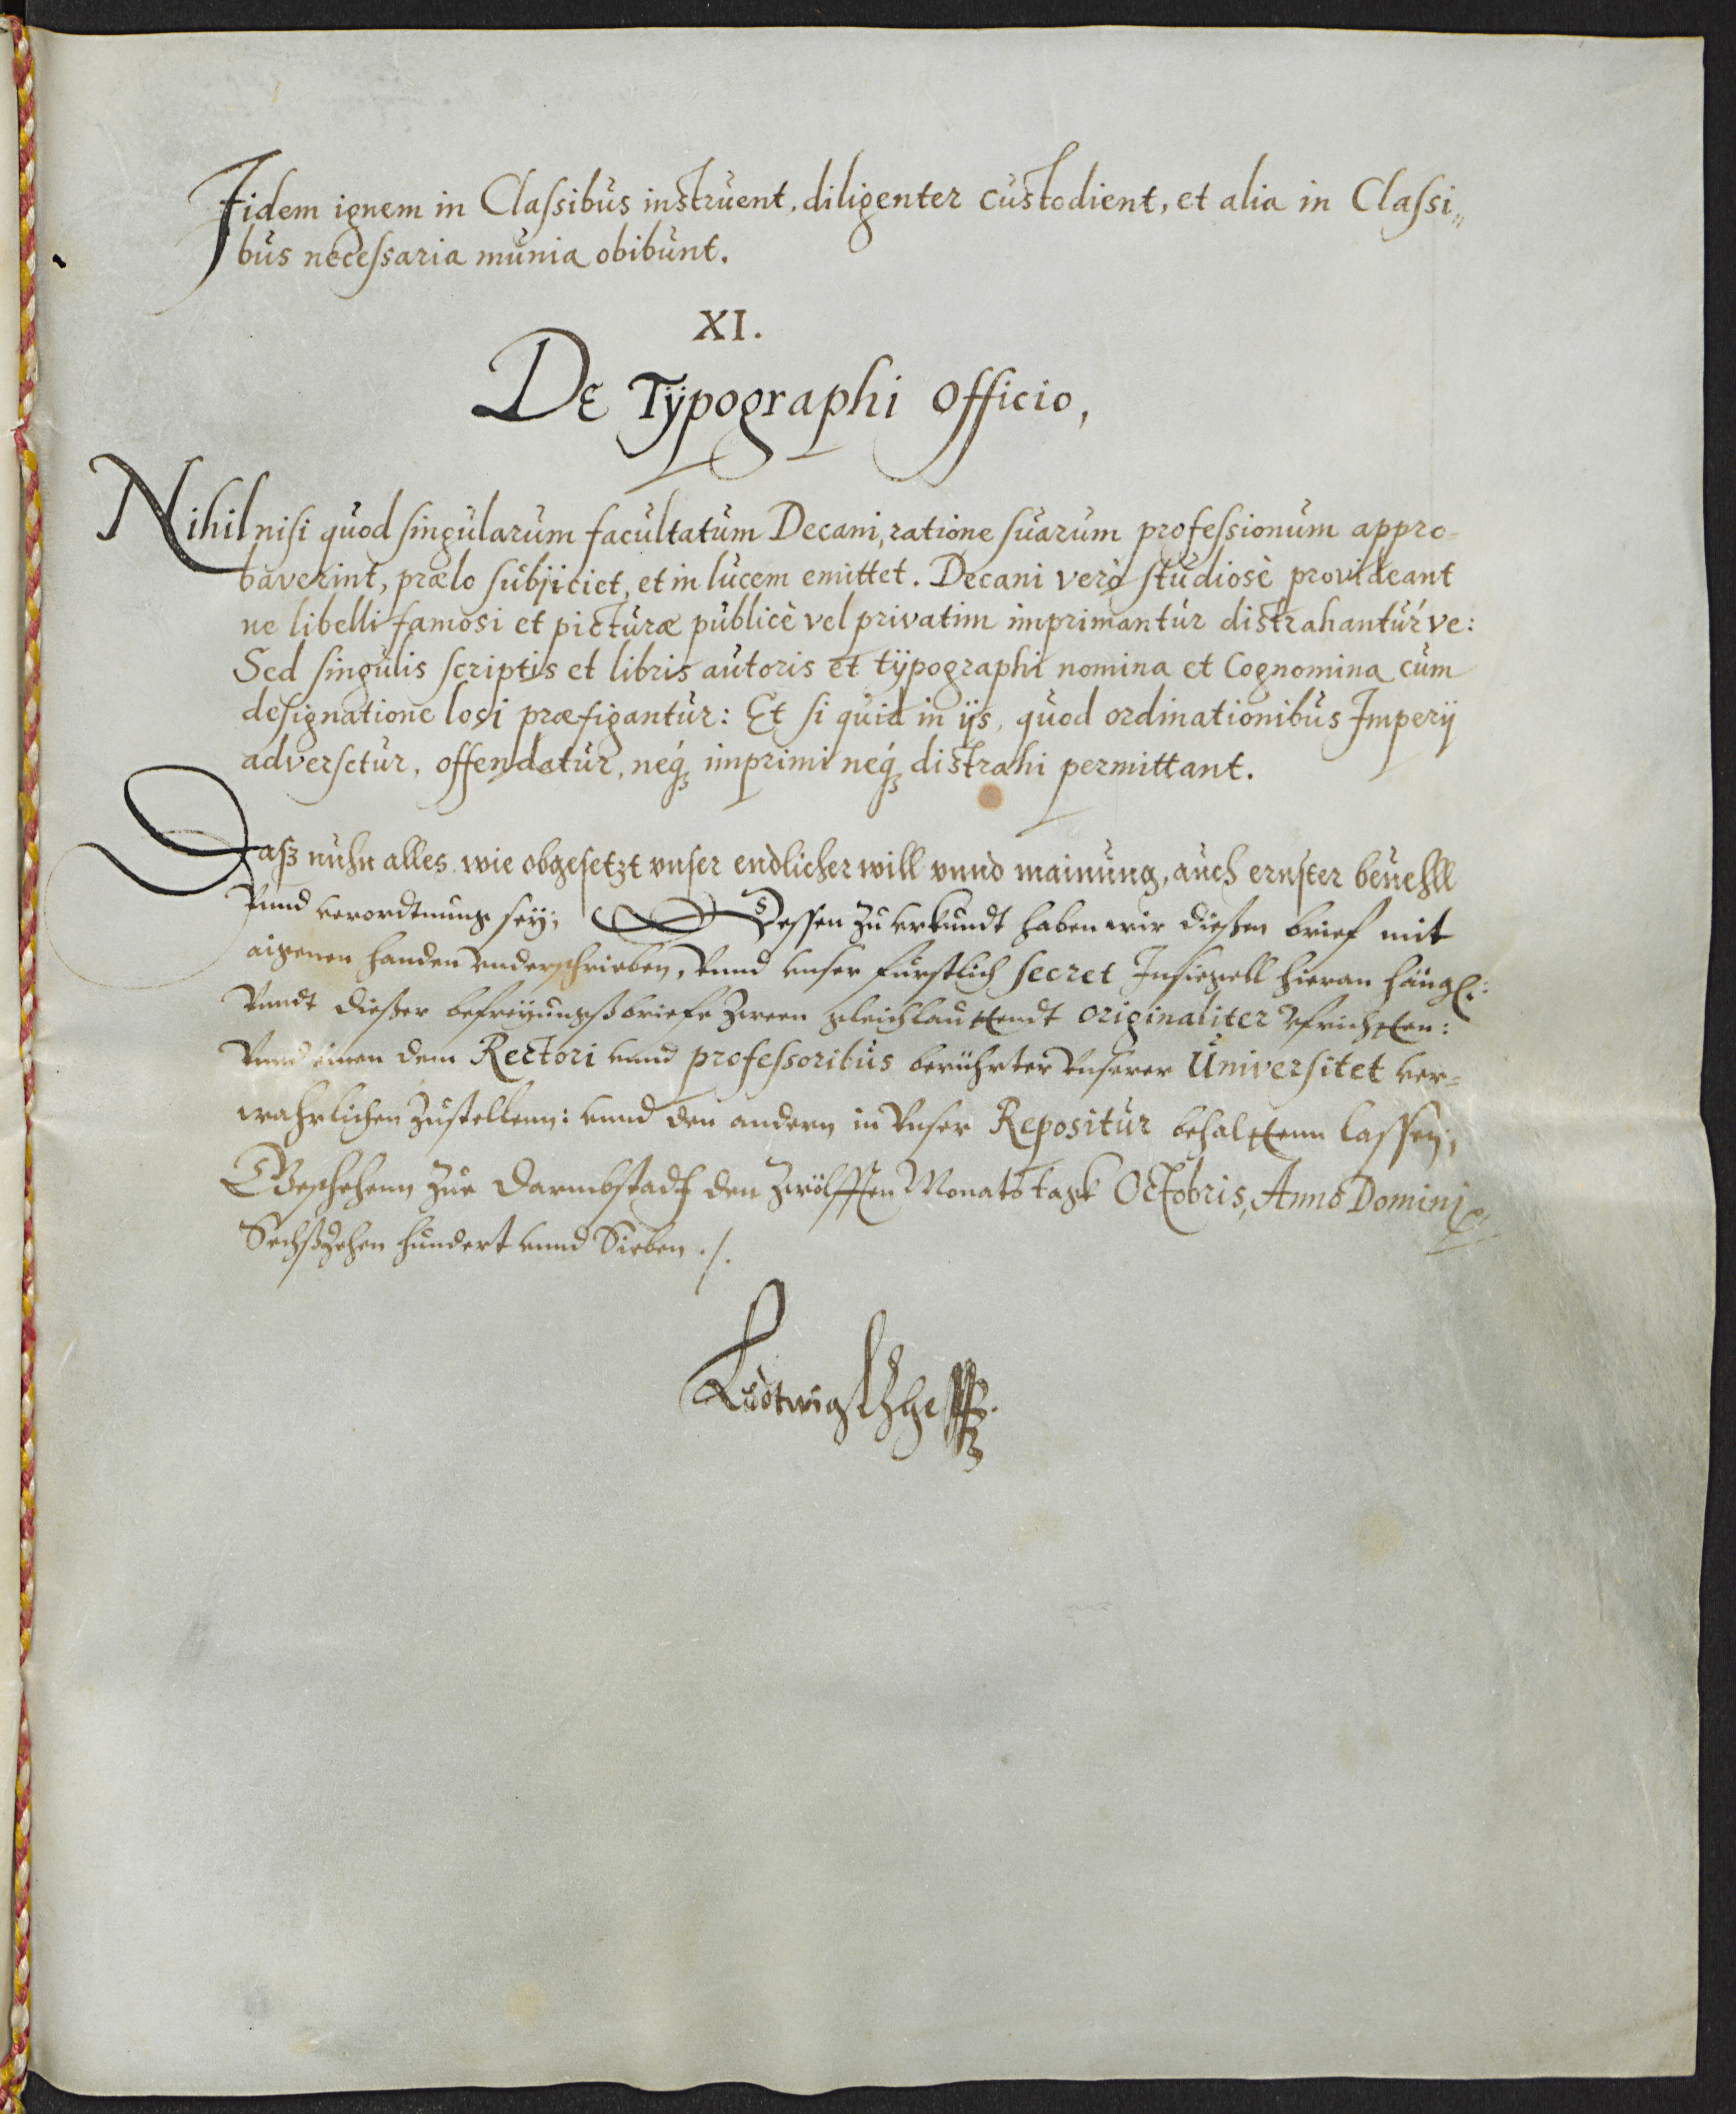 Iidem ignem in Classibus instruent, diligenter custodient, et alia in Classi„
bus necessaria munia obibunt.
XI.
De Typographi Officio,
Nihil nisi quod singularum facultatum Decani, ratione suarum professionum appro-
baverint, prælo subjiciet, et in lucem emittet. Decani verò studiosè provideant
ne libelli famosi et picturæ publicè vel privatim imprimantur distrahanturve:
Sed singulis scriptis et libris autoris et typographi nomina et Cognomina cum
designatione loci præfigantur: Et si quid in ijs, quod ordinationibus Imperij
adversetur, offendatur, neq; imprimi neq; distrahi permittant.
Daß nuhn alles wie obgesetzt vnser endlicher will vnnd mainung, auch ernster beuehll
Vnnd verordtnung sey; Dessen zu vrkundt haben wir dießen brief mit
aigenen handen vnderschrieben, Vnnd vnser fürstlich secret Insiegell hieran häng:
Vnndt dießer befreyungßbriefe zween gleichlauttendt originaliter vfrichtten:
Vnnd einen dem Rectori vnnd professoribus berührter Vnserer Universitet ver=
wahrlichen zustellenn: vnnd den andern in Vnser Repositur behalttenn lassen;
Geschehenn zue Darmbstadt den zwölfften Monats tagk Octobris, Anno Domini
Sechßzehen hundert vnnd Sieben ./.
Ludwig LZHess